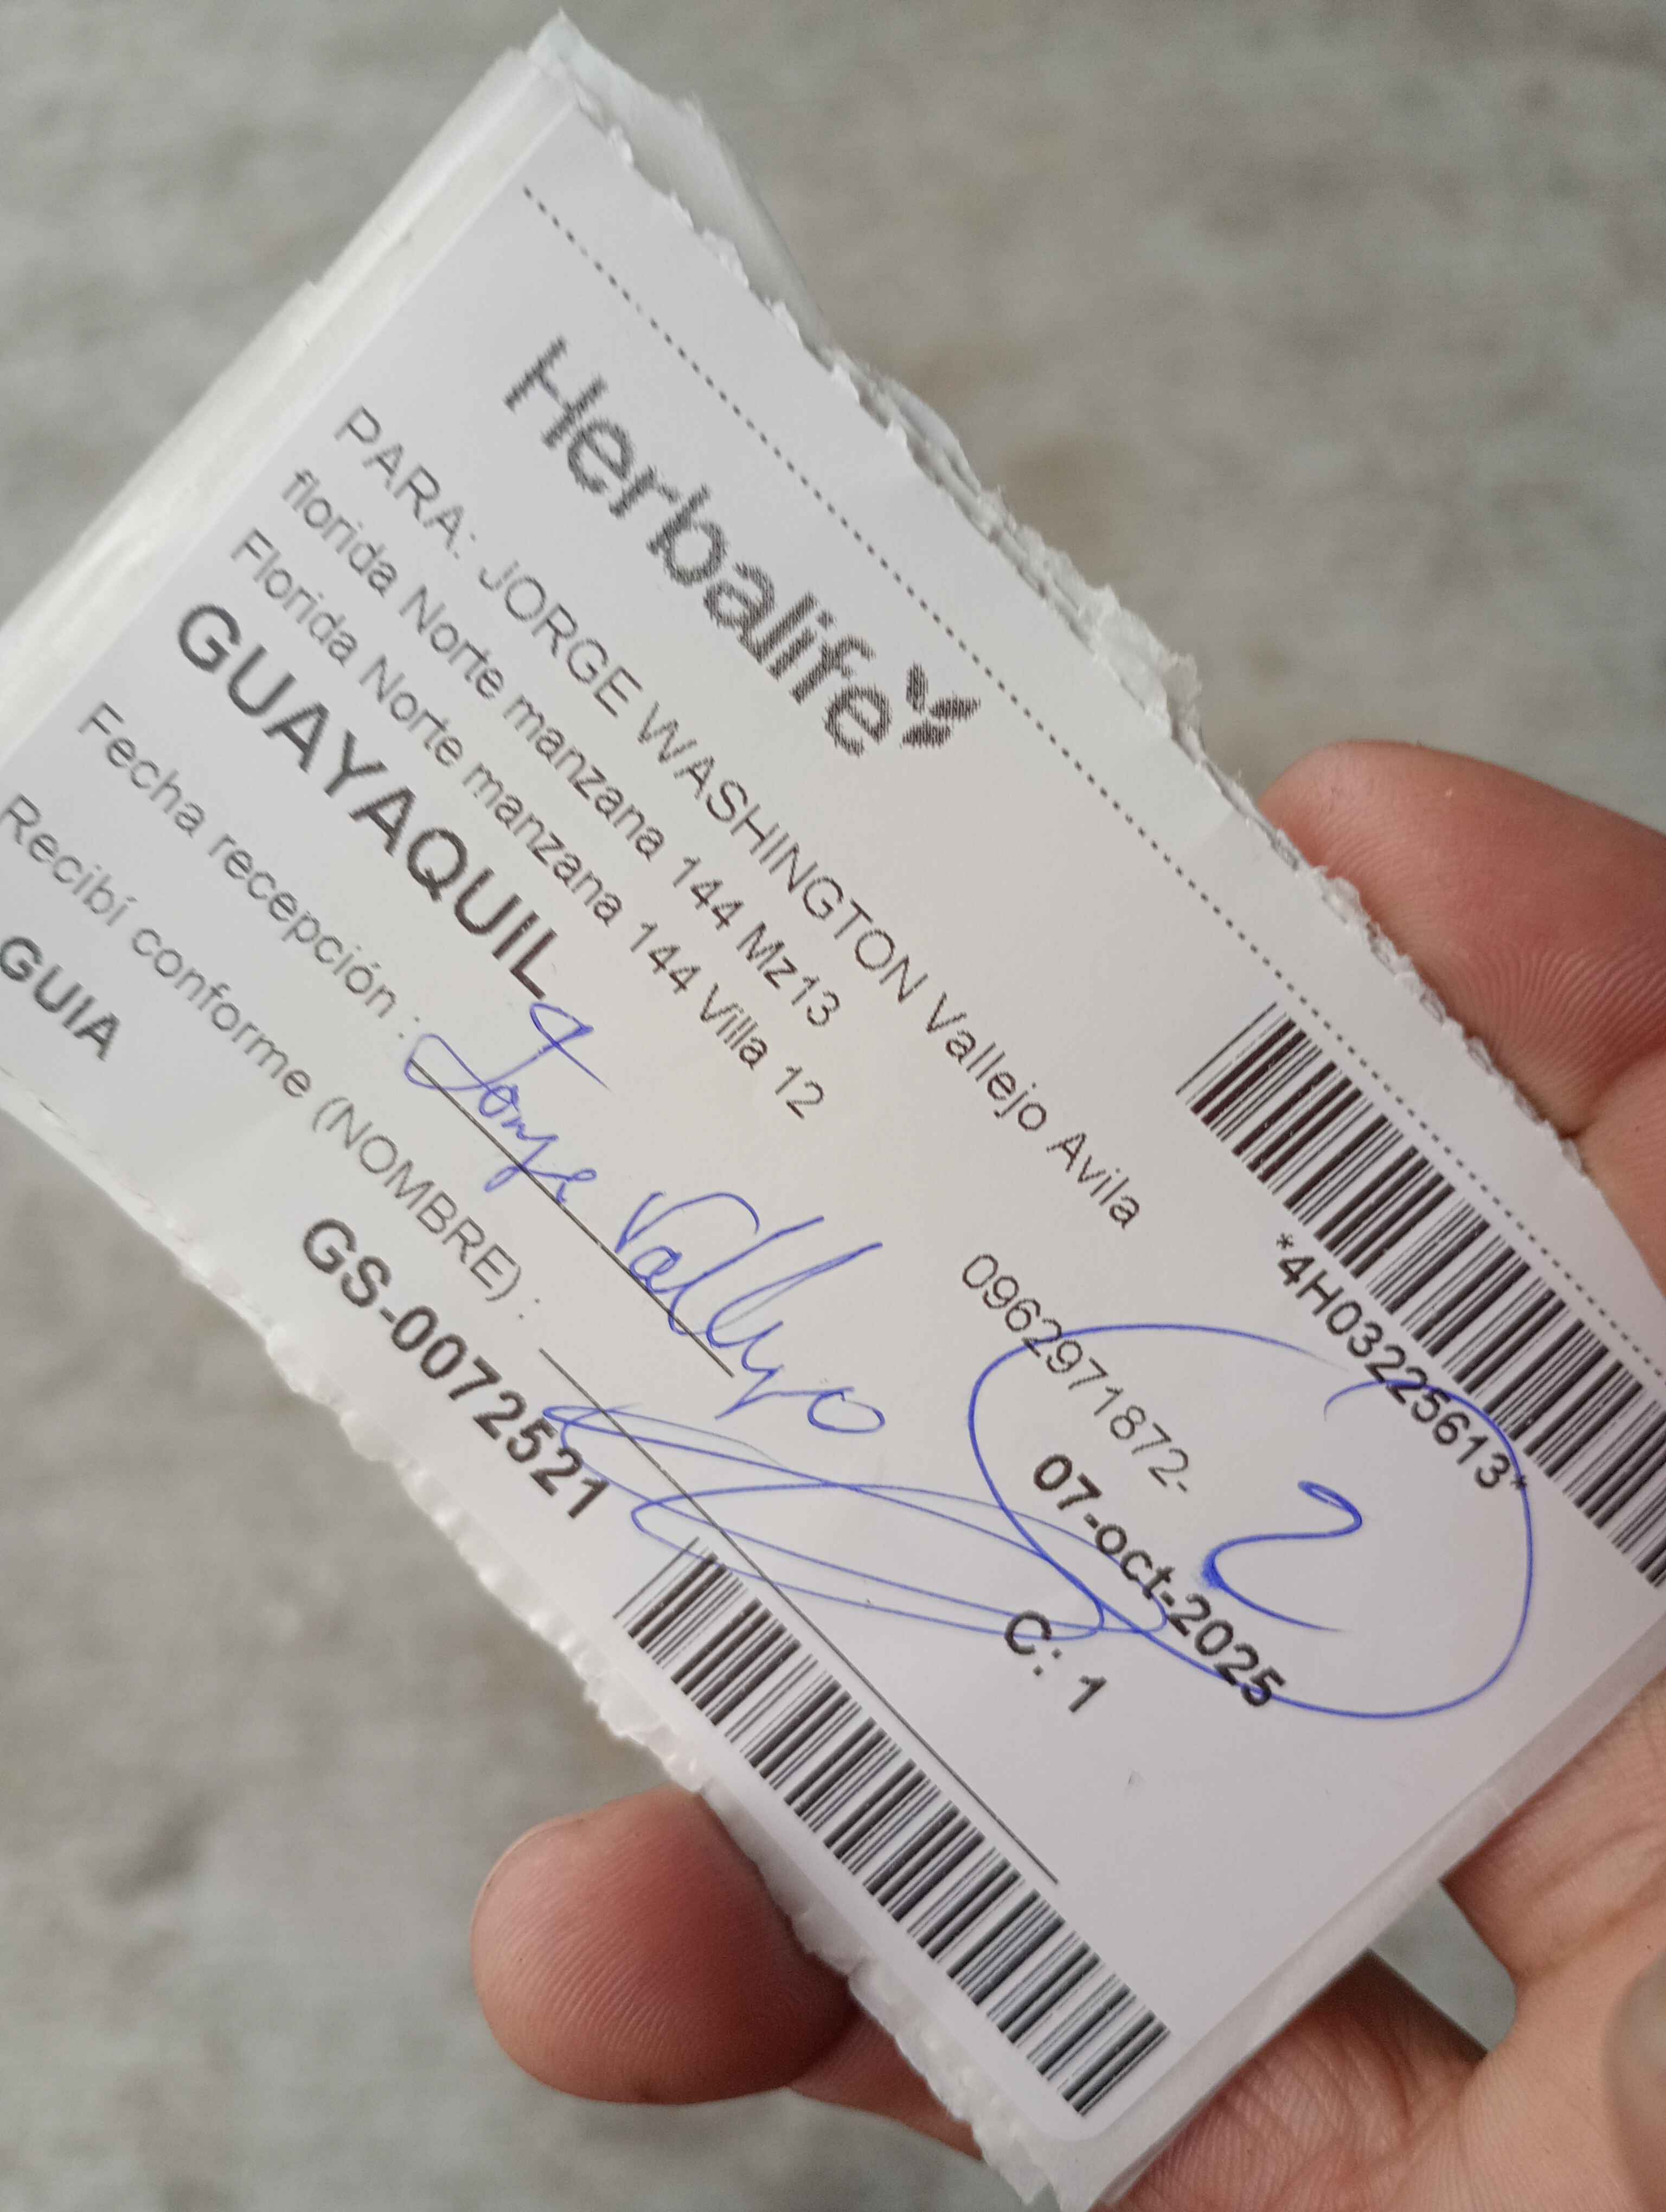 Herbalife
*4H03225613*
PARA: JORGE WASHINGTON Vallejo Avila
florida Norte manzana 144 Mz13
0962971872-
Florida Norte manzana 144 Villa 12
GUAYAQUIL
07-oct-2025
2
Fecha recepción :
Jorge Vallejo
C: 1
Recibí conforme (NOMBRE) :
GUIA
GS-0072521